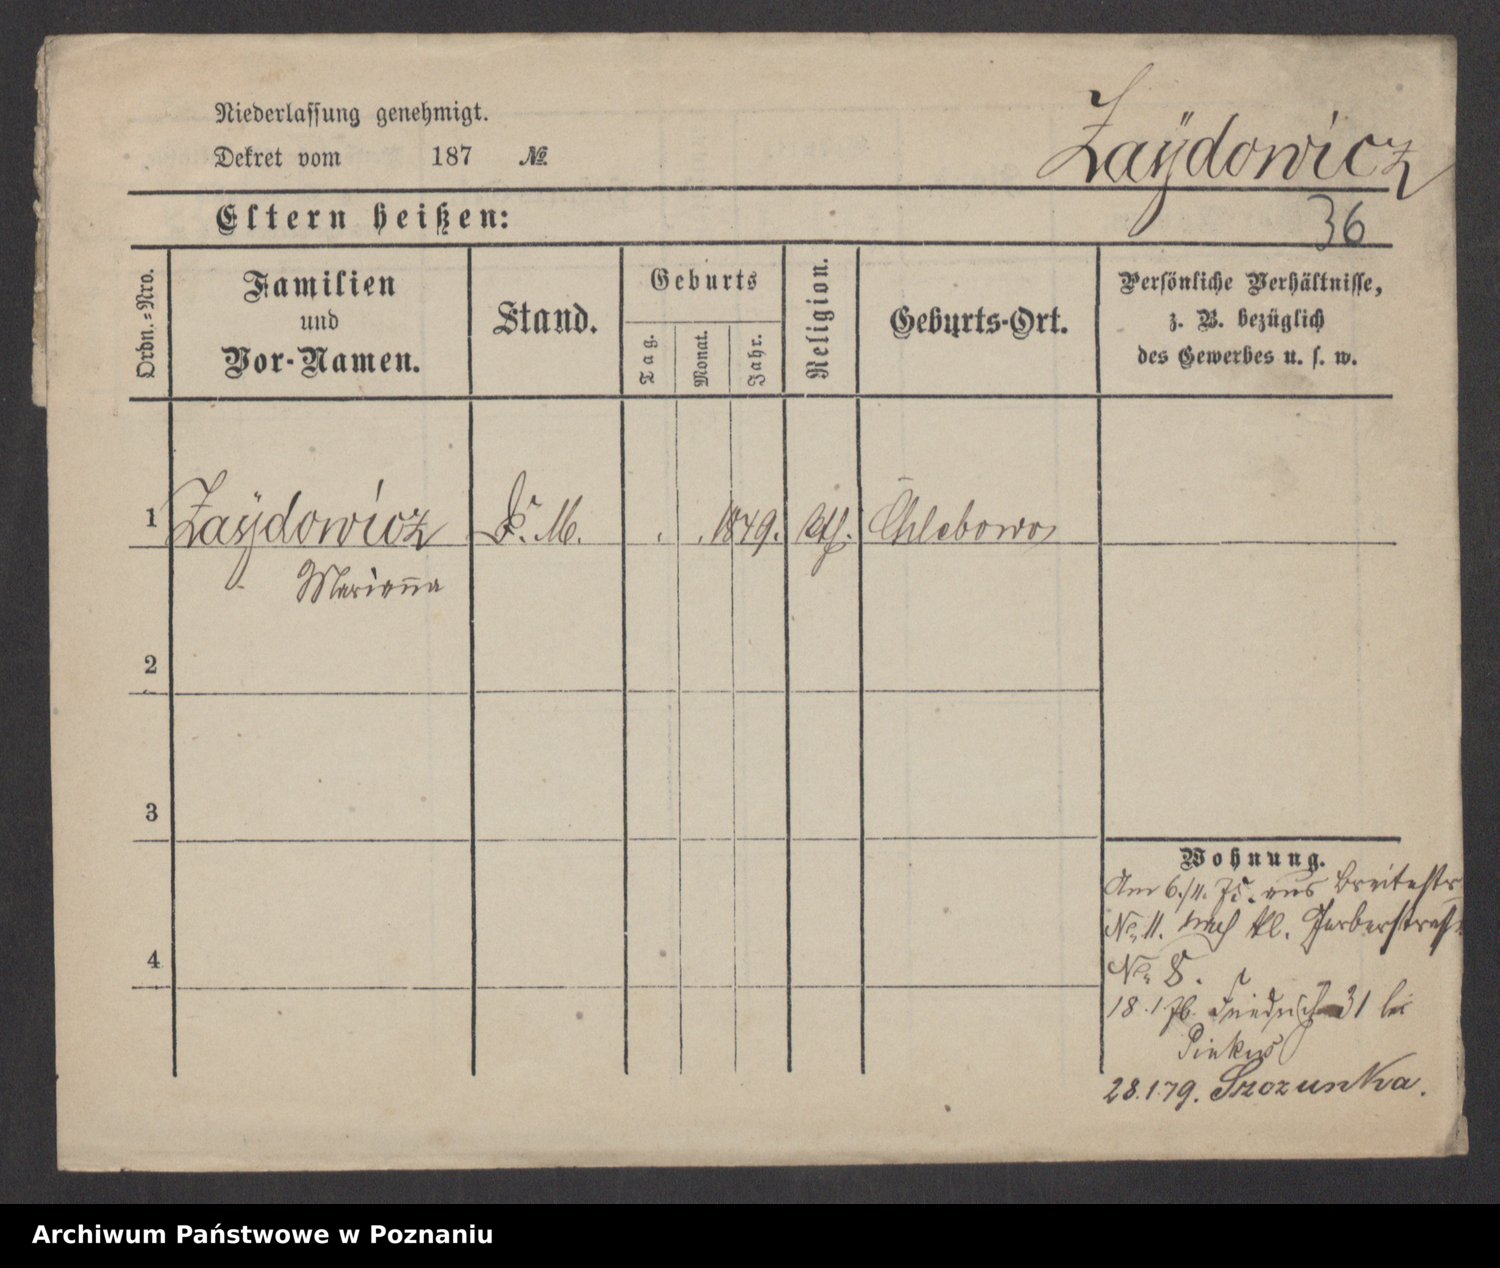 Niederlassung genehmigt.
Dekret vom 187 №
Zaÿdowicz
Eltern heißen:
36
Ordn.-Nro.
Familien
und
Vor-Namen.
Stand.
Geburts
Tag.
Monat.
Jahr.
Religion.
Geburts-Ort.
Persönliche Verhältnisse,
z. B. bezüglich
des Gewerbes u. s. w.
1 Zaÿdowicz D. M. . . 1849. kth. Chlebowo
Marianna
2
3
4
Wohnung.
Am 6./11. 75. aus Breitestr
No 11. nach kl. Gerberstraße
No 8.
18.1.76. Friedrich 31 bei
Pinkus
28.1.79. Szczunka.
Archiwum Państwowe w Poznaniu